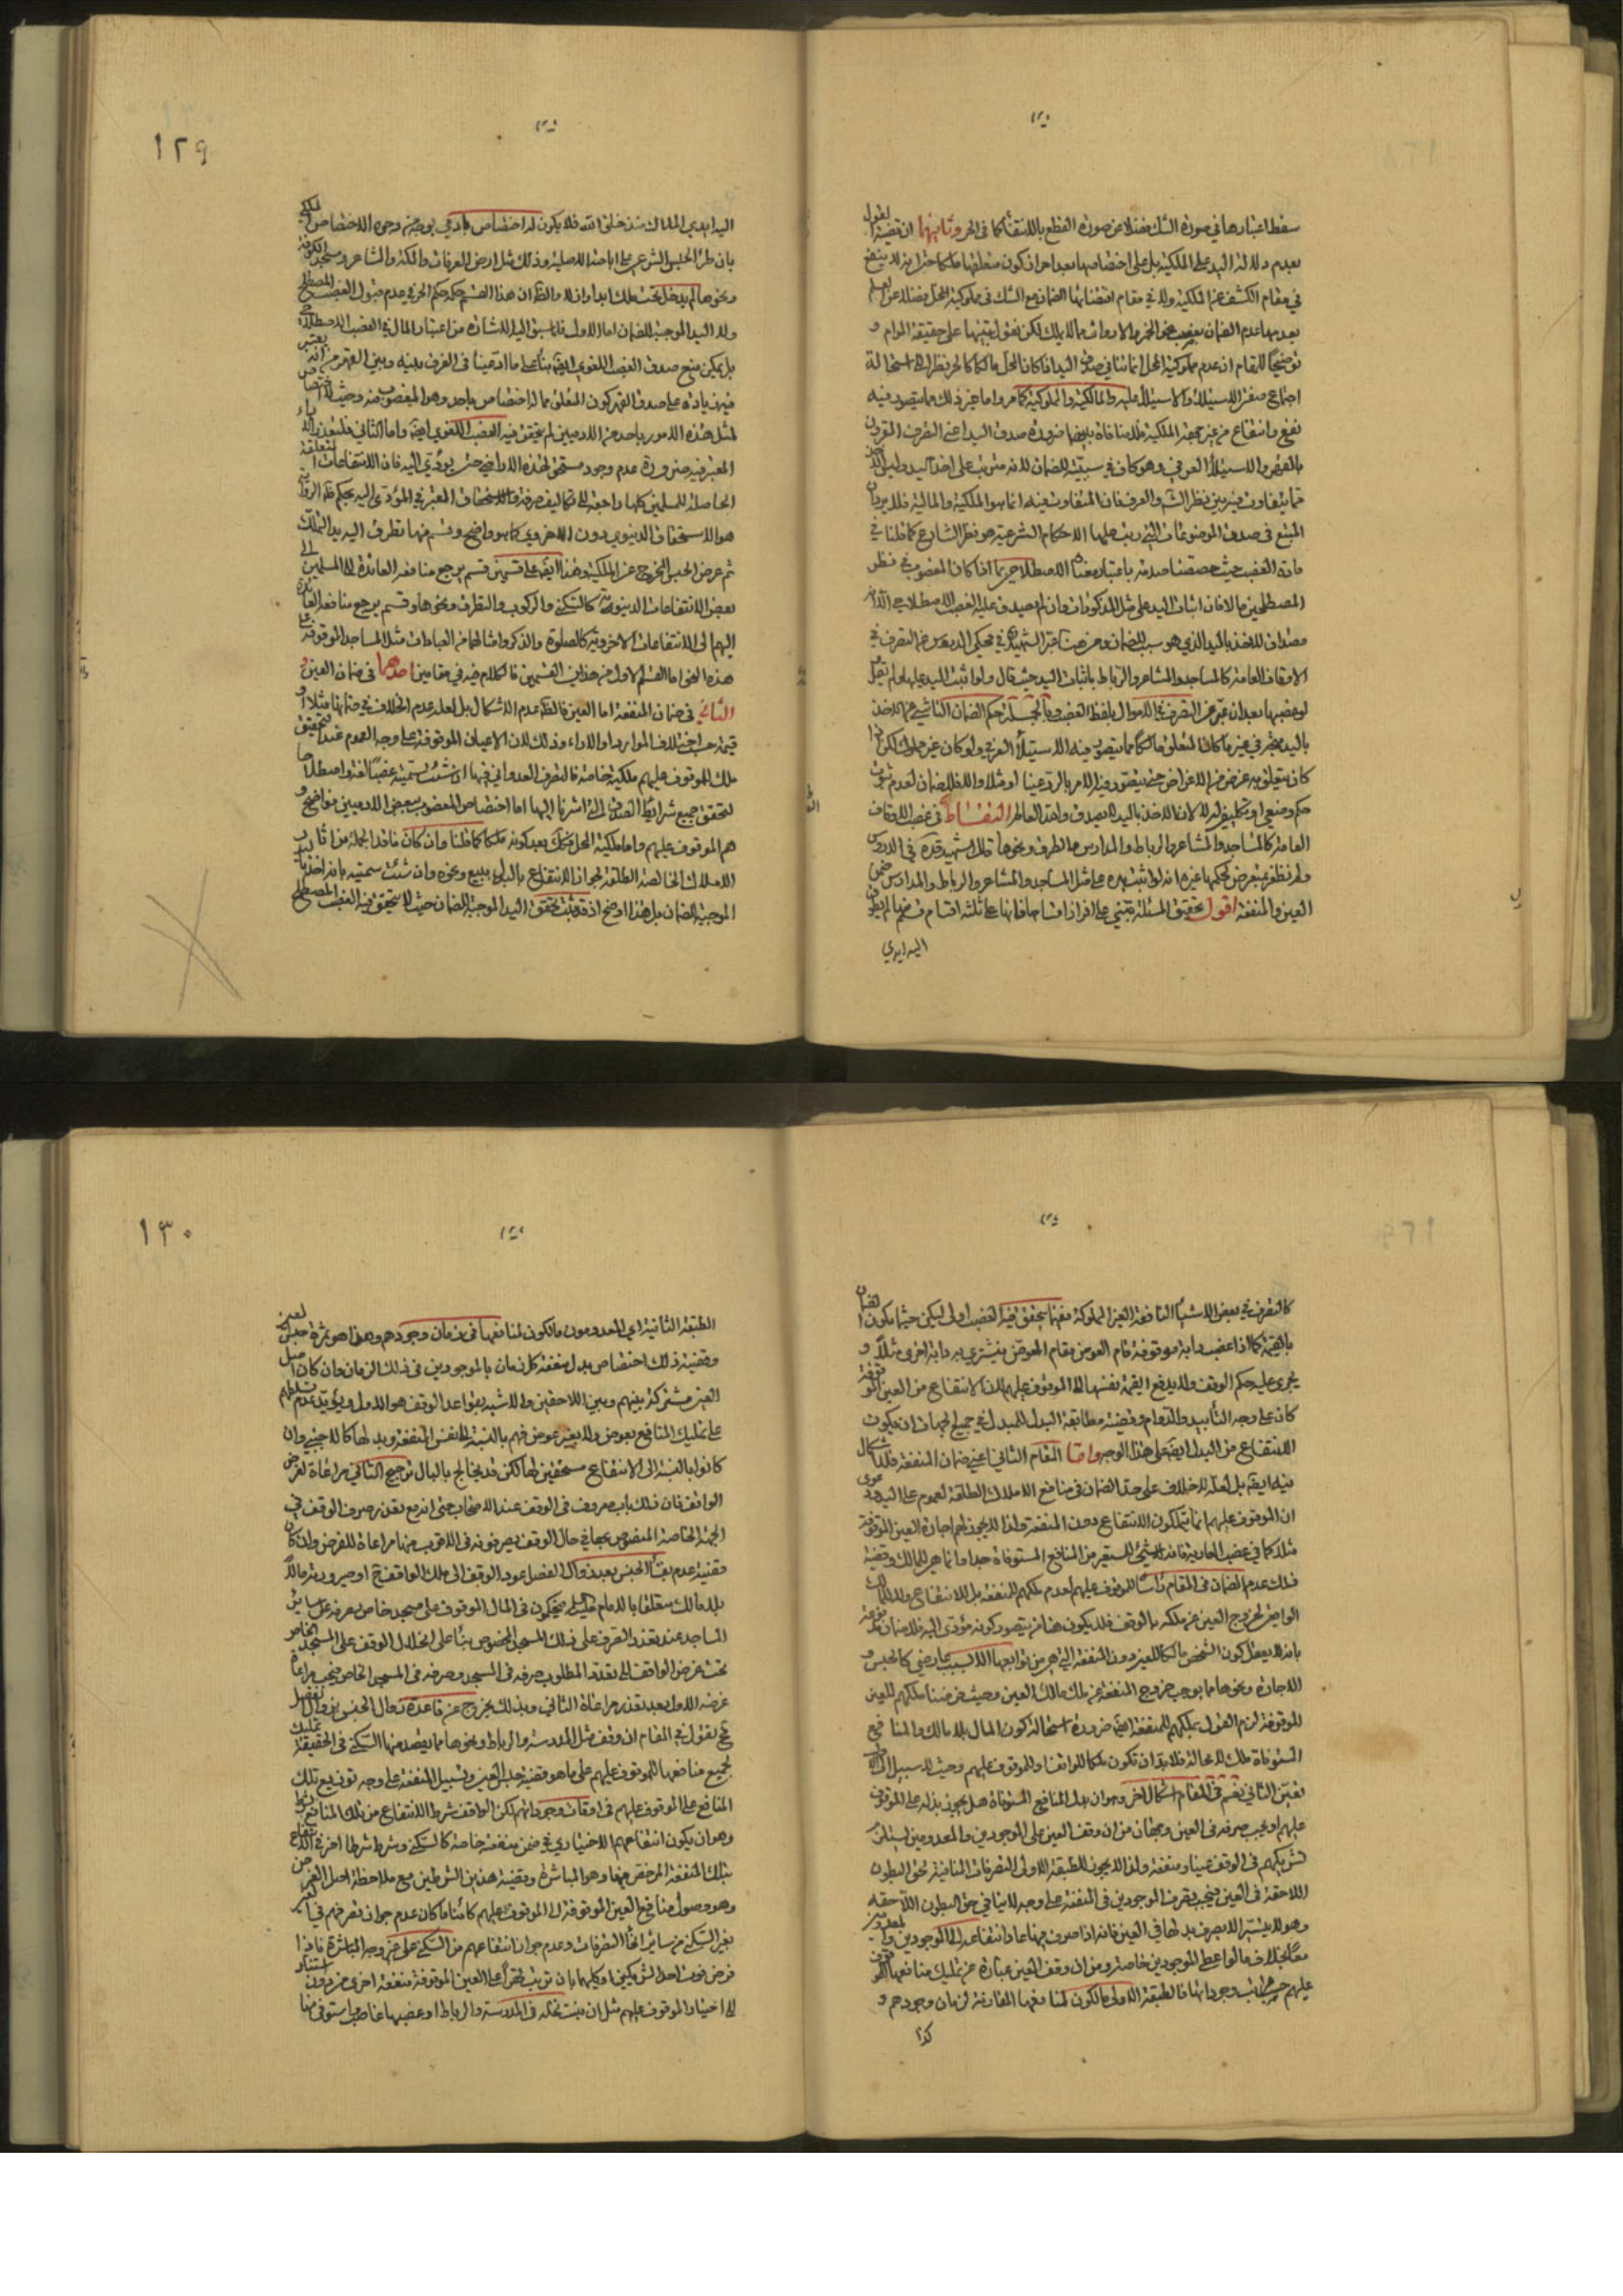 سقط اعتبارها في صورة الشك فضلا عن صورة القطع بالانتفاء كما في الحر وثانيها ان قضية القول
بعدم دلالة اليد على الملكية بل على اختصاصها بعد احراز كون متعلقها ملكا
في مقام الكشف عن الملكية ولا في مقام اقتضائها الضمان مع الشك في مملوكية المحل فضلا عن العلم
بعدمها عدم الضمان بغصب نحو الخمر مما لا يملك لكن نقول بتبنيها على حقيقة المرام و
توضيحا للمقام ان عدم مملوكية المحل انما ينافي صدق اليد اذا كان المحل مالكا كالحر نظرا الى استحالة
اجتماع صفة الاستيلاء والاستيلاء عليه والمالكية والمملوكية كما مر واما غير ذلك مما يتصور فيه
نفع وانتفاع من غير جهة الملكية فلا منافاة بينهما ضرورة صدق اليد اعني التصرف المقرون
بالقهر والاستيلاء العرفي وهو كاف في سببيته للضمان لانه مترتب على اخذ اليد وليس الاخذ
مما يتفاوت فيه بين نظر الشرع والعرف فان المتفاوت فيه انما هو الملكية والمالية فلا يرد ان
المتبع في صدق الموضوعات التي رتب عليها الاحكام الشرعية هو نظر الشارع كما قلنا في
مادة الغصب حيث خصصنا صدقه باعتبار معناه الاصطلاحي بما اذا كان المغصوب في نظر
المصطلحين مالا فان اثبات اليد على مثل المذكورات وان لم يصدق عليه الغصب الاصطلاحي الا انه
مصداق للاخذ باليد الذي هو سبب الضمان ومن هنا عبر الشهيد في محكي الدروس عن التصرف في
الاوقاف العامة كالمساجد والمشاعر والرباط باثبات اليد حيث قال ولو اثبت اليد عليها ولم يقل
لو غصبها بعد ان عبر عن التصرف في الاموال بلفظ الغصب وبالجملة حكم الضمان الناشي عن الاخذ
باليد يجري في غير ما كان المتعلق مالكا مما يتصور فيه الاستيلاء العرفي ولو كان غير مملوك لكن اذا
كان يتعلق به غرض من الاغراض حتى يتصور فيه الامر بالرد عينا او مثلا والا فلا ضمان لعدم ثبوت
حكم وضعي او تكليفي له لا لان الاخذ باليد لا يصدق والله العالم التقاط في غصب الاوقاف
العامة كالمساجد والمشاعر والرباط والمدارس والطرف ونحوها قال الشهيد قده في الدروس
ولم نظفر بتعرض لحكمها غيره انه لو اثبت يده على مثل المساجد والمشاعر والرباط والمدارس ضمن
العين والمنفعة اقول تحقيق المسئلة يبتني على افراز اقسامها فانها على ثلثة اقسام قسم منها لم يطرق
اليه ايدي
١٢٩
اليه ايدي الملاك منذ خلق الله فلا يكون له اختصاص بادمي بوجه من وجوه الاختصاص الملكي
بان طرأ الحبس الشرعي على اباحته الاصلية وذلك مثل ارض العرفات والمكة والمشاعر ومسجد الكوفة
ونحوها لم يدخل تحت ملك ابدا والظ ان هذا القسم حكمه حكم الحر في عدم قبول الغصب المصطلح
ولا اليد الموجبة للضمان اما الاول فلما سبق اليه الاشارة من اعتبار المال في الغصب الاصطلاحي
بل يمكن منع صدق الغصب اللغوي ايضا بناء على ما ادعينا في الفرق بينه وبين القهر من انه يعتبر
فيه زيادة على صدق القهر كون المتعلق مما له اختصاص باحد وهو المغصوب منه وحيث لا اختصاص
لمثل هذه الامور باحد من الادميين لم يتحقق فيه الغصب اللغوي ايضا واما الثاني فلتعذر الاداء
المعتبر فيه ضرورة عدم وجود مستحق لهذه الاراضي حتى يؤدي اليه فان الانتفاعات المتعلقة
الحاصلة للمسلمين كلها راجعة الى تكاليف صرفة والاستحقاق المعتبر في المؤدى اليه بحكم ظ الرواية
هو الاستحقاق الدنيوي دون الاخروي كما هو واضح وقسم منها تطرق اليه يد التملك
ثم عرض الحبس المخرج عن الملكية وهذا ايضا على قسمين قسم يرجع منافعه العائدة الى المسلمين الى
بعض الانتفاعات الدنيوية كالسكنى والركوب والتطرق ونحوها وقسم يرجع منافعه العائدة
اليهم الى الانتفاعات الاخروية كالصلوة والذكر وامثالها من العبادات مثل المساجد الموقوفة على
هذه النحو اما القسم الاول من هذين القسمين فالكلام فيه في مقامين احدهما في ضمان العين و
الثاني في ضمان المنفعة اما العين فالظ عدم الاشكال بل لعله عدم الخلاف في ضمانها مثلا او
قيمة حسب اختلاف الموارد والاداء وذلك لان الاعيان الموقوفة على وجه العموم عند التحقيق
ملك للموقوف عليهم ملكية خاصة فالتصرف العدواني فيها ان شئت سميته غصبا لغة واصطلاحا
لتحقق جميع شرائط الصدق التي اشرنا اليها اما اختصاص المغصوب ببعض الادميين فواضح و
هم الموقوف عليهم واما ملكية المحل فكك بعد كونه ملكا كما قلنا وان كان فاقدا لجملة من اثار
الاملاك الخالصة الطلقة كجواز الانتفاع بالبدل ببيع ونحوه وان شئت سميته بانه اخذ باليد
الموجبة للضمان بل هذا اوضح اذ قد يثبت تحقق اليد الموجبة للضمان حيث لا يتحقق فيه الغصب المصطلح
كالتصرف في بعض الاشياء النافعة الغير المملوكة ففيما يتحقق فيه الغصب اولى ليكن حيثما يكون الضمان
بالقيمة كما اذا غصب دابة موقوفة قام العوض مقام المعوض فيشتري به دابة اخرى مثلا و
يجري عليه حكم الوقف ولا يدفع القيمة بنفسها الى الموقوف عليهم لان الانتفاع من العين الموقوفة
كان على وجه التأبيد والدوام وقضية مطابقة البدل للمبدل في جميع الجهات ان يكون
الانتفاع من البدل ايضا على هذا الوجه واما المقام الثاني اعني ضمان المنفعة فلا اشكال
فيه ايضا بل لعله لا خلاف على حد الضمان في منافع الاملاك الطلقة لعموم على اليد ودعوى
ان الموقوف عليهم انما يتملكون الانتفاع دون المنفعة ولذا لا يجوز لهم اجارة العين الموقوفة
مثلا كما في غصب العارية فانه لا شيء للمستعير من المنافع المستوفاة جدا وانما هي للمالك وقضية
ذلك عدم الضمان في المقام رأسا للموقوف عليهم لعدم ملكهم للمنفعة بل للانتفاع ولا للمالك
الواقف لخروج العين عن ملكه بالوقف فلا يكون هنا من يتصور كونه مؤدى اليه فلا ضمان مدفوعة
بانه لا يعقل كون الشخص مالكا للعين دون المنفعة التي هي من توابعها الا لسبب عارضي كالحبس و
الاجارة ونحوها مما يوجب خروج المنفعة عن ملك مالك العين وحيث فرضنا ملكهم للعين
الموقوفة لزم القول بملكهم للمنفعة ايضا ضرورة استحالة كون المال بلا مالك والمنافع
المستوفاة ملك لا محالة فلا بد ان تكون ملكا للواقف او للموقوف عليهم وحيث لا سبيل الى الاول
تعين الثاني نعم في المقام اشكال اخر وهو ان بدل المنافع المستوفاة هل يجوز بذله على الموقوف
عليهم او يجب صرفه في العين وجهان من ان وقف العين على الموجودين والمعدومين يستلزم
تشريكهم في الوقف عينا ومنفعة ولذا لا يجوز للطبقة الاولى التصرفات المنافية لحق البطون
اللاحقة في العين فيجب تصرف الموجودين في المنفعة على وجه لا ينافي حق البطون اللاحقة
وهو لا يتيسر الا بصرف بدلها في العين فانه اذا صرف فيها عاد انتفاعه الى الموجودين والمعدومين
معا بخلاف ما لو اعطي الموجودين خاصة ومن ان وقف العين عبارة عن تمليك منافعها للموقوف
عليهم حسب مراتب وجوداتها فالطبقة الاولى مالكون لمنافعها المقارنة لزمان وجودهم و
كذا
١٣٠
الطبقة الثانية اي المعدومون مالكون لمنافعها في زمان وجودهم وهذا هو ثمرة حبس العين
وقضية ذلك اختصاص بدل منفعة كل زمان بالموجودين في ذلك الزمان وان كان اصل
العين مشتركة بينهم وبين اللاحقين والاشبه بقواعد الوقف هو الاول ويؤيده عدم تسلطهم
على تمليك المنافع بعوض ولا بغير عوض فهم بالنسبة الى نفس المنفعة وبدلها كالاجنبي وان
كانوا بالنسبة الى الانتفاع مستحقين لها لكن قد يختلج بالبال ترجيح الثاني مراعاة لغرض
الواقف فان ذلك باب معروف في الوقف عند الاصحاب حتى انه مع تعذر صرف الوقف في
الجهة الخاصة المنصوص بها في حال الوقف يصرفونه في الاقرب منها مراعاة للغرض وان كان
قضية عدم بقاء الحبس بعد زوال الفصل عود الوقف الى ملك الواقف ح او صيرورته مالا
بلا مالك متعلقا بالامام عليه السلام فيحكمون في المال الموقوف على مسجد خاص بصرفه على ساير
المساجد عند تعذر الصرف على ذلك المسجد المخصوص بناء على انحلال الوقف على المسجد الخاص
تحت غرض الواقف الى تعدد المطلوب صرفه في المسجد وصرفه في المسجد الخاص فيجب مراعاة
غرضه الاول بعد تعذر مراعاة الثاني وبذلك يخرج عن قاعدة زوال الحبس بزوال الفصل
فح نقول في المقام ان وقف مثل المدرسة والرباط ونحوها مما يقصد منها السكنى في الحقيقة تمليك
لجميع منافعها للموقوف عليهم على ما هو قضية حبس العين وتسبيل المنفعة على وجه توزيع تلك
المنافع على الموقوف عليهم في اوقات وجوداتهم لكن الواقف شرط الانتفاع من تلك المنافع شرطا
وهو ان يكون انتفاعهم الاختياري في ضمن منفعة خاصة كالسكنى وشرط شرطا اخر في الانتفاع
بتلك المنفعة المرخص فيها وهو المباشرة وقضية هذين الشرطين مع ملاحظة اصل الغرض
وهو وصول منافع العين الموقوفة الى الموقوف عليهم كائنا ما كان عدم جواز تعرضهم في العين
بغير السكنى من ساير انحاء التصرفات وعدم جواز انتفاعهم من السكنى على غير وجه المباشرة فاذا
فرض فوت احد الشرطين او كليهما بان ترتب قهرا على العين الموقوفة منفعة اخرى من دون استناد
الى اختيار الموقوف عليهم مثل ان نبت نخلة في المدرسة والرباط او غصبها غاصب واستوفى منها